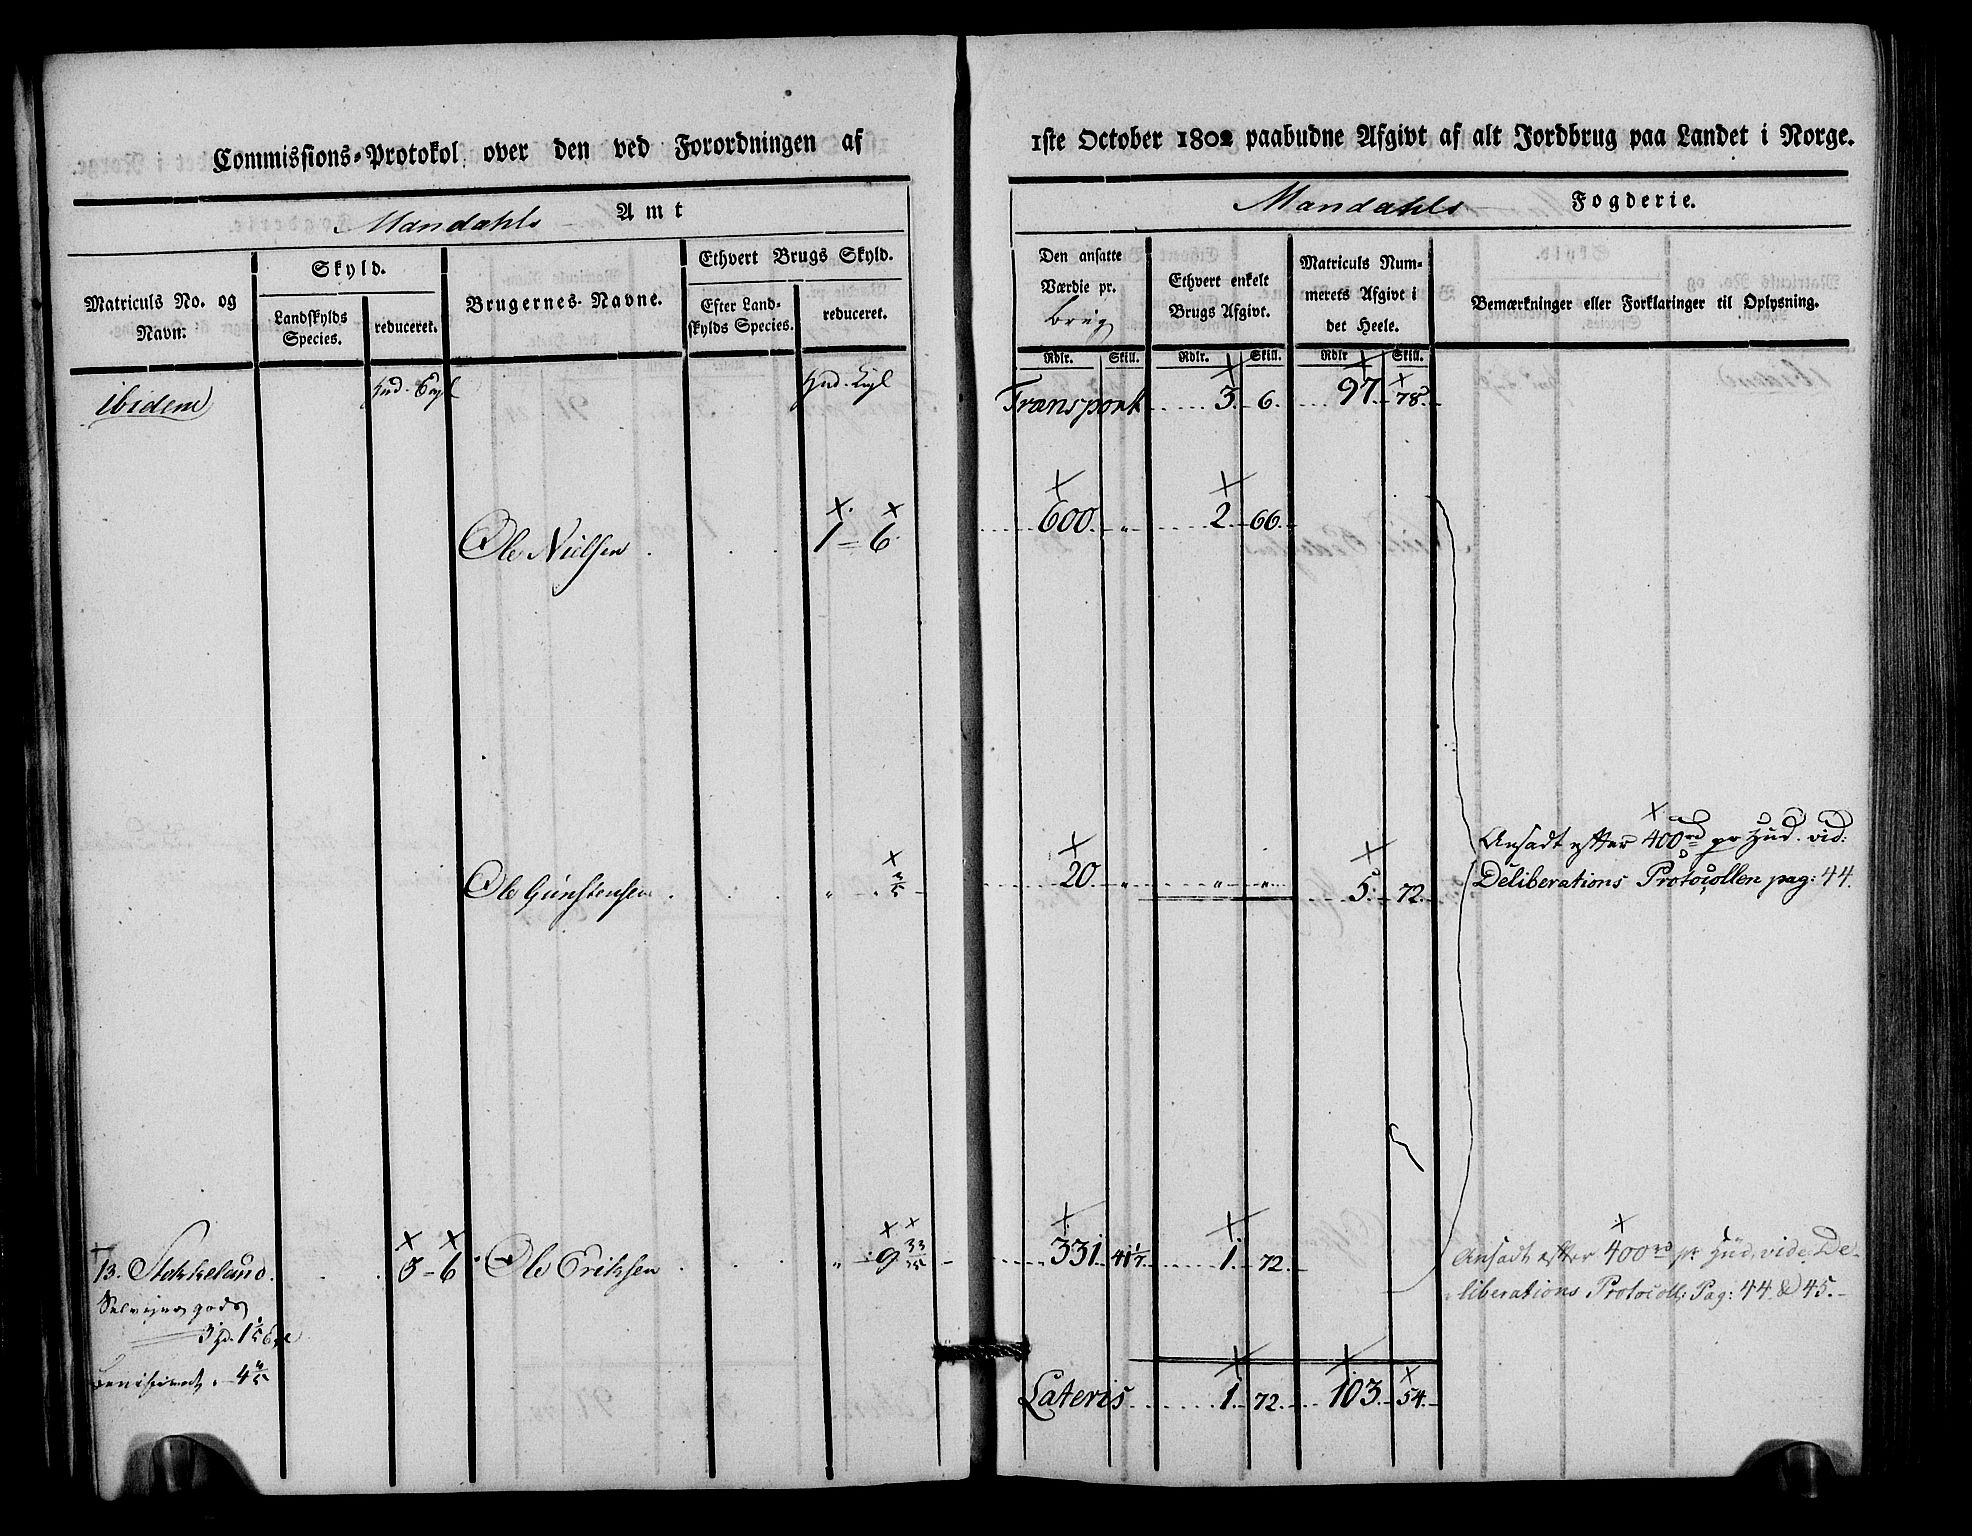 Commissions-Protokol over den ved Forordningen af
1ste October 1802 paabudne Afgivt af alt Jordbrug paa Landet i Norge.
Mandahls Amt
Mandahls Fogderie.
Matriculs No. og Navn.
Skyld.
Landskylds Species.
reduceret.
Brugernes Navne.
Ethvert Brugs Skyld.
Efter Landskylds Species.
reduceret.
Den ansatte Værdie pr. brug
Ethvert enkelt Brugs Afgivt.
Matriculs Nummerets Afgivt i det Heele.
Bemærkninger eller Forklaringer til Oplysning.
Rdlr. Skill. Rdlr. Skill. Rdlr Skill.
ibidem Transport 3 6 97 78
Ole Nielsen 1 = 6 600 " 2 66
Ansadt efter 400rd pr Hud. vid:
Ole Gunstensen " 20 " " " 5 72 Deliberations Protocollen pag: 44.
13. Stokkeland 5 - 6 Ole Eriksen " 9 33/35 331 41 1/7 1 72 Ansadt efter 400rd pr Hud, vide De-
Selveyer gods liberations Protocoll: Pag: 44 & 45.
Lateris 1 72 103 54